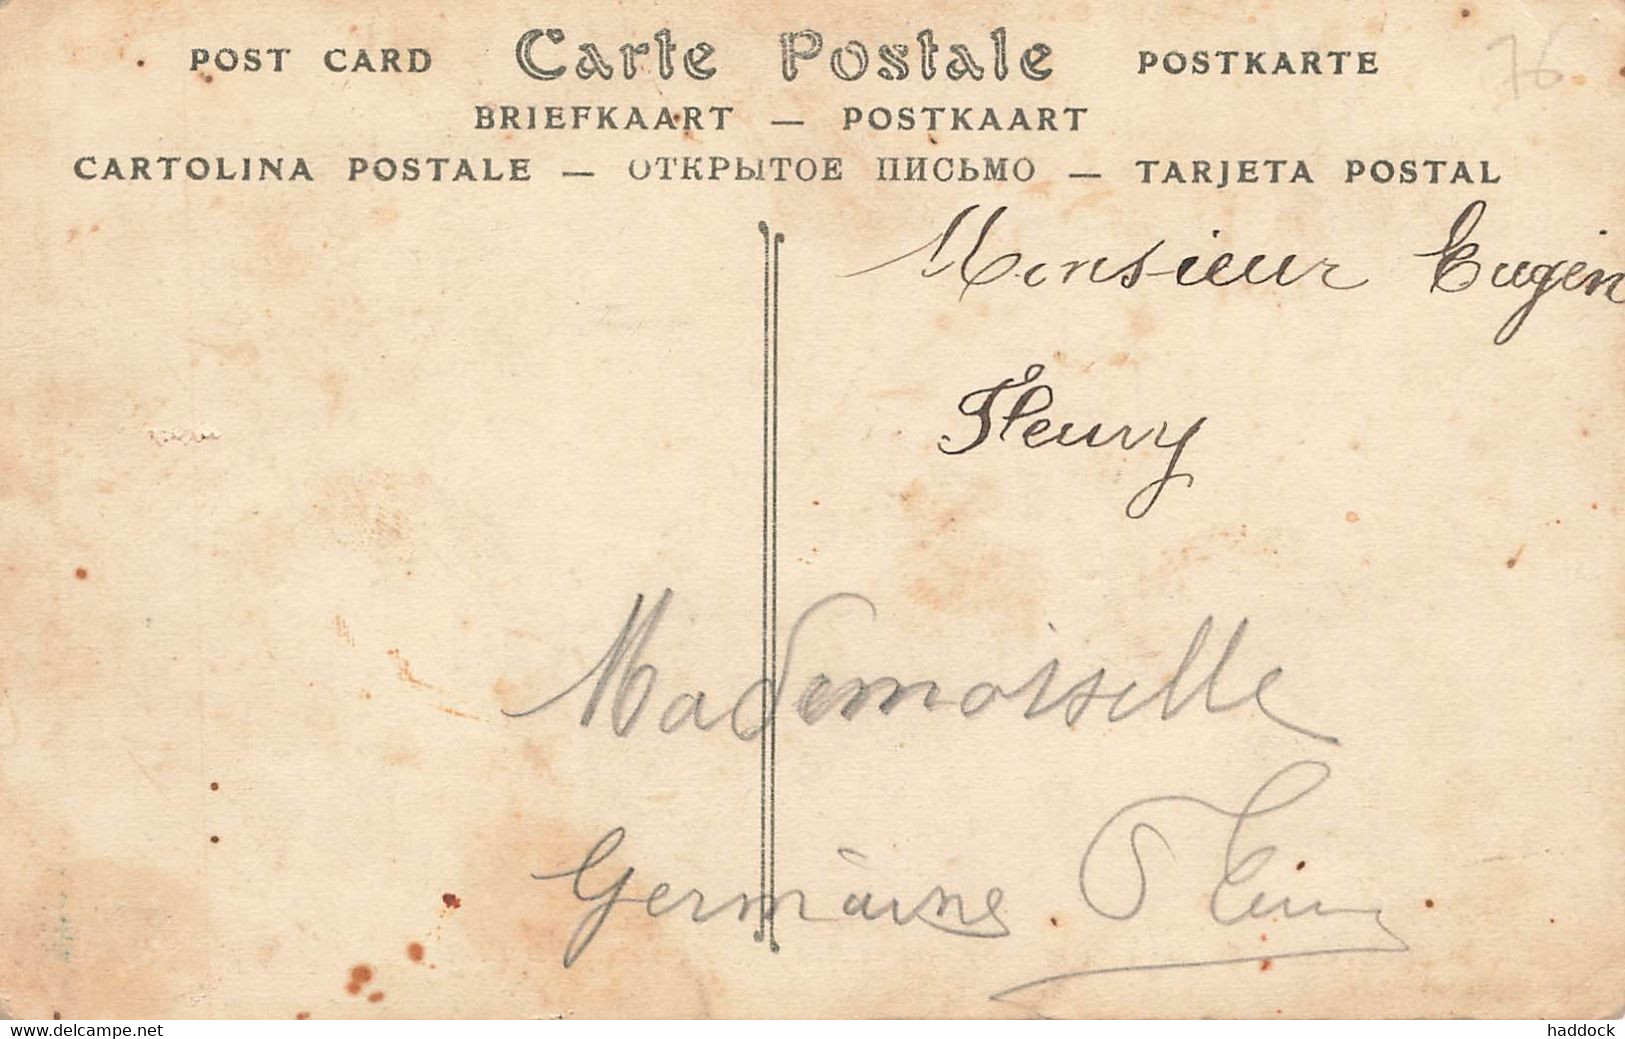 POST CARD Carte Postale POSTKARTE
76
BRIEFKAART — POSTKAART
CARTOLINA POSTALE — ОТКРЫТОЕ ПИСЬМО — TARJETA POSTAL
Monsieur Eugèn
Fleury
Mademoiselle
Germaine Fleury
www.delcampe.net
haddock